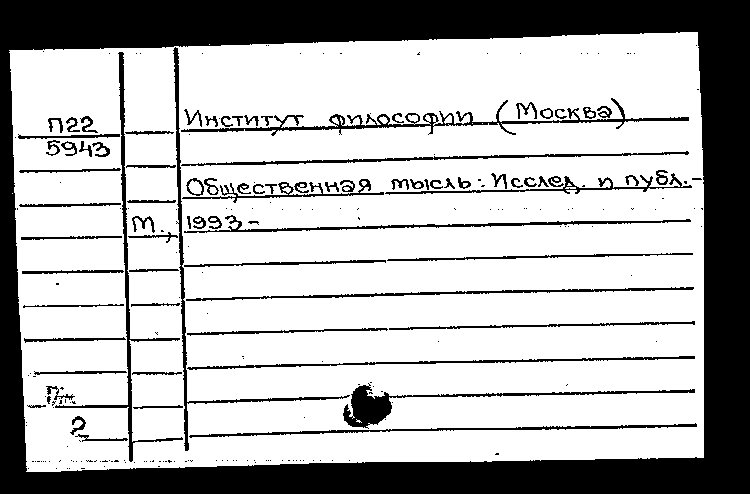 П22
5943
Институт философии (Москва)
Общественная мысль: Исслед. и публ.-
М., 1993-
2